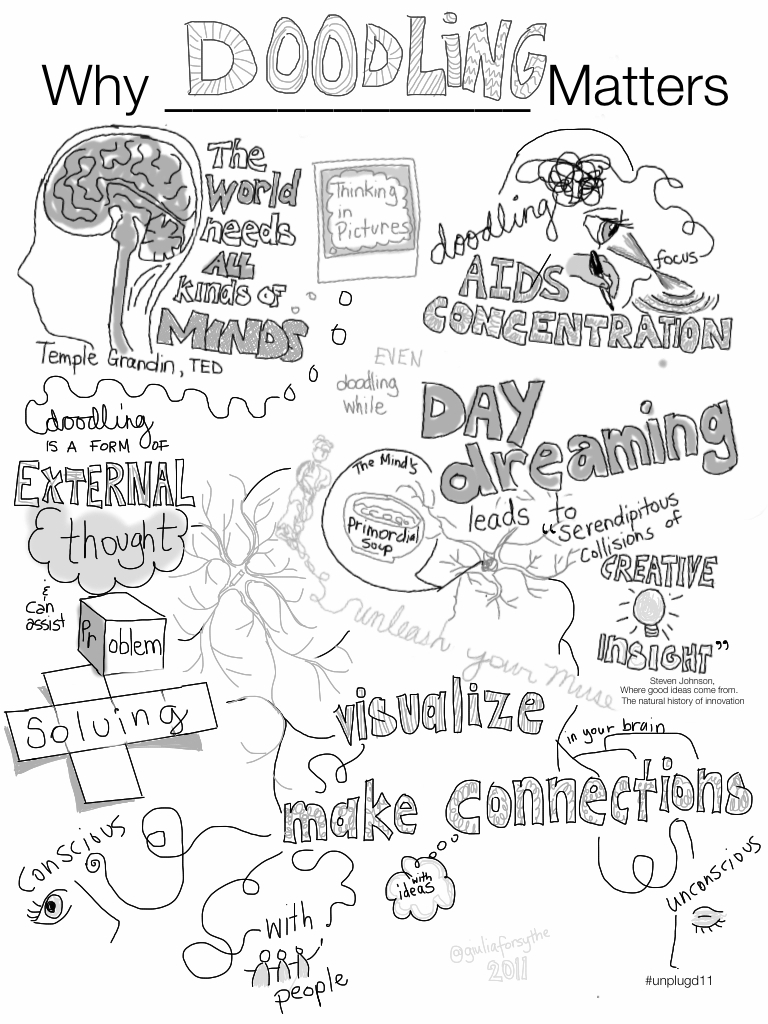 Why DOODLiNG Matters
The
world
needs
ALL
kinds of
MINDS
Temple Grandin, TED
Thinking
in
Pictures
doodling
AIDS
CONCENTRATION
focus
EVEN
doodling
while
DAY
dreaming
leads to
"Serendipitous
Collisions of
CREATIVE
INSIGHT"
Steven Johnson,
Where good ideas come from.
The natural history of innovation
The Mind's
Primordial
Soup
doodling
IS A FORM OF
EXTERNAL
thought
& can
assist
Problem
Solving
unleash your Muse
visualize
in your brain
make connections
Conscious
with
ideas
with
people
unconscious
@giuliaforsythe
2011
#unplugd11